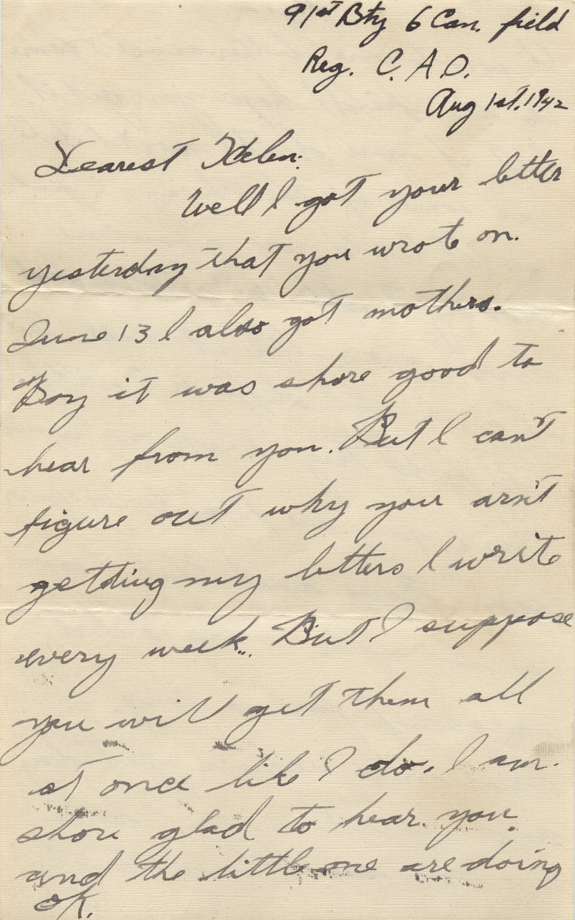 91st Bty 6 Can. field
Reg. C.A.O.
Aug 1st. 1942
Dearest Helen:
Well I got your letter
yesterday that you wrote on.
June 13 I also got mothers.
Boy it was shore good to
hear from you. But I can't
figure out why your arn't
getting my letters I write
every week. But I suppose
you will get them all
at once like I do. I am.
shore glad to hear you
and the little one are doing
OK.